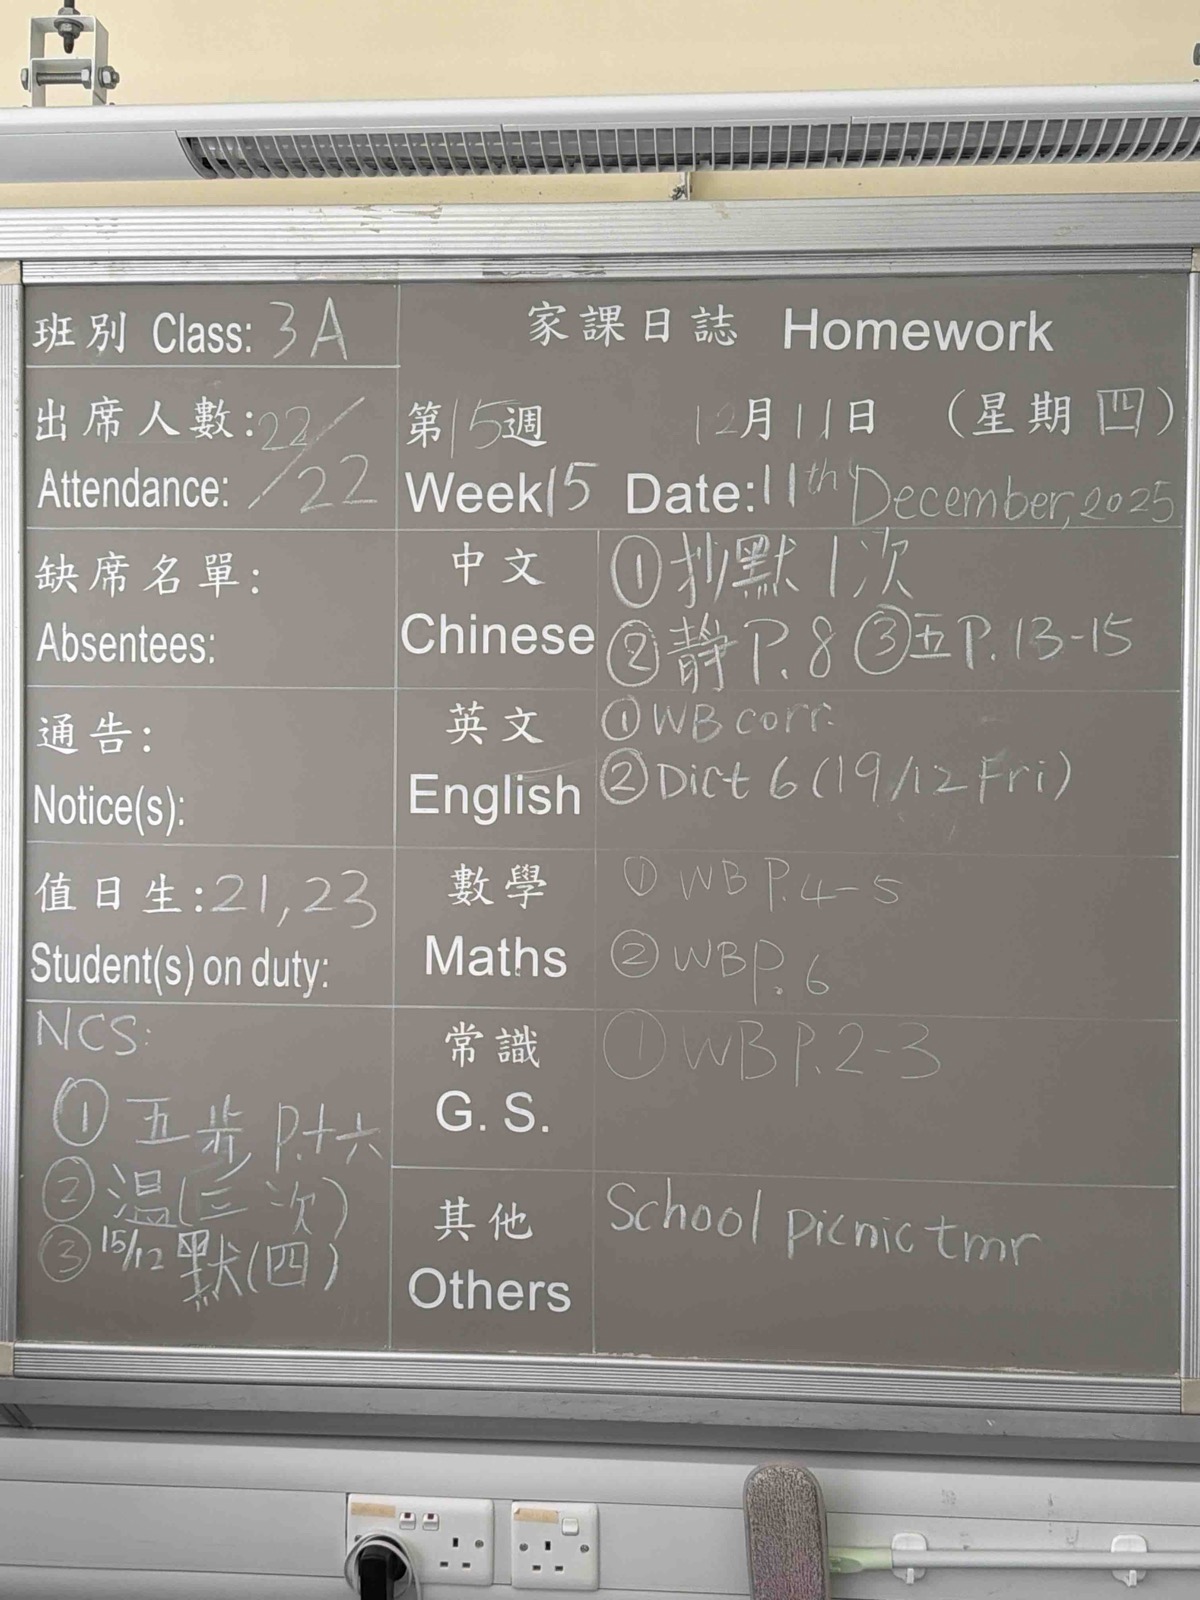 班別 Class: 3A
家課日誌 Homework
出席人數: 22/
Attendance: /22
第15週 12月11日 (星期四)
Week15 Date: 11th December, 2025
缺席名單:
Absentees:
中文 ①抄默1次
Chinese ②靜P.8 ③五P.13-15
通告:
Notice(s):
英文 ①WB corr.
English ②Dict 6 (19/12 Fri)
值日生: 21, 23
Student(s) on duty:
數學 ① WB P.4-5
Maths ② WB P.6
NCS:
① 五步 P.十六
② 温(三次)
③ 15/12 默(四)
常識 ① WB P.2-3
G. S.
其他 School picnic tmr
Others